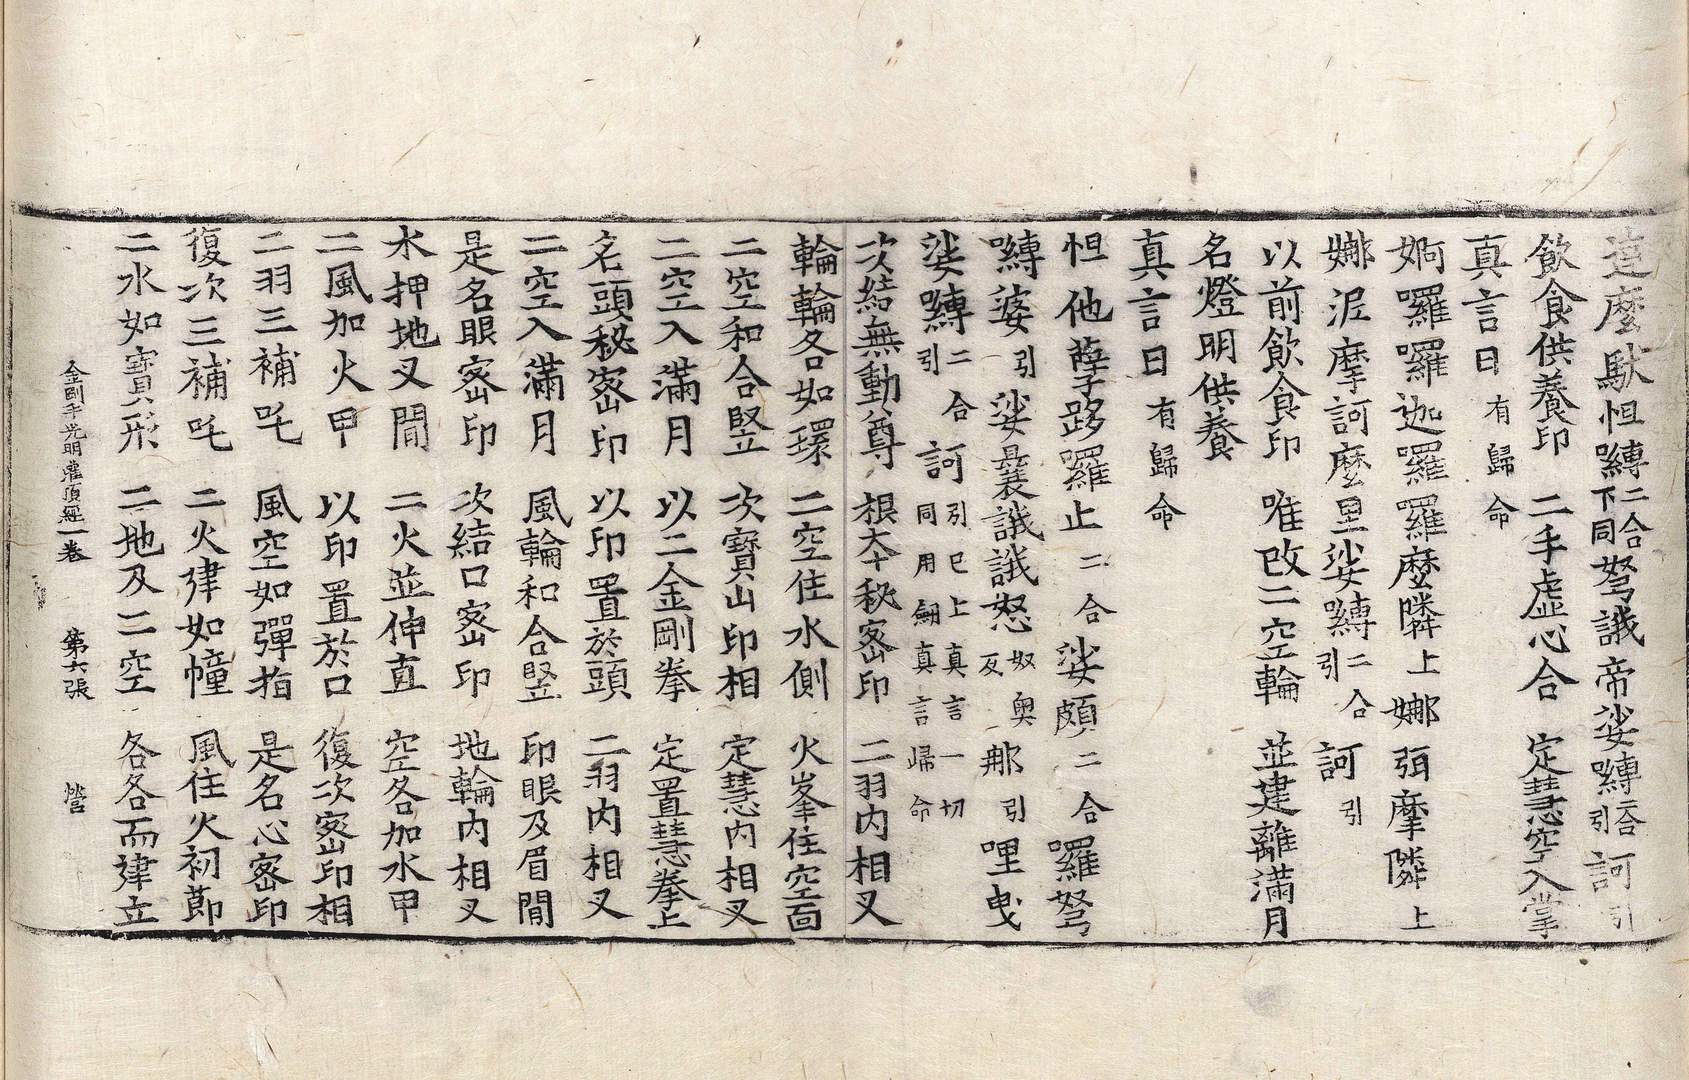 達麼馱怛嚩二合下同弩誐帝娑嚩二合引訶引
飲食供養印　二手虛心合　定慧空入掌
真言曰有歸命
婀囉囉迦囉羅麼隣上娜弭摩隣上
娜泥摩訶麼里娑嚩二合引訶引
以前飲食印　唯改二空輪　並建離滿月
名燈明供養
真言曰有歸命
怛他孽跢羅止二合娑頗二合羅弩
嚩婆引娑曩誐誐怒奴奧反那引哩曳
娑嚩二合引訶引已上真言一切同用劒真言歸命
次結無動尊　根本秘密印　二羽內相叉
輪輪各如環　二空住水側　火峯住空面
二空和合竪　次寶山印相　定慧內相叉
二空入滿月　以二金剛拳　定置慧拳上
名頭秘密印　以印置於頭　二羽內相叉
二空入滿月　風輪和合竪　印眼及眉間
是名眼密印　次結口密印　地輪內相叉
水押地叉間　二火並伸直　空各加水甲
二風加火甲　以印置於口　復次密印相
二羽三補吒　風空如彈指　是名心密印
復次三補吒　二火建如幢　風住火初節
二水如寶形　二地及二空　各各而建立
金剛手光明灌頂經一卷　第六張